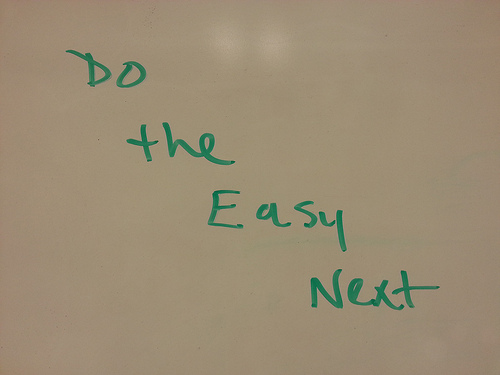 Do
the
Easy
Next